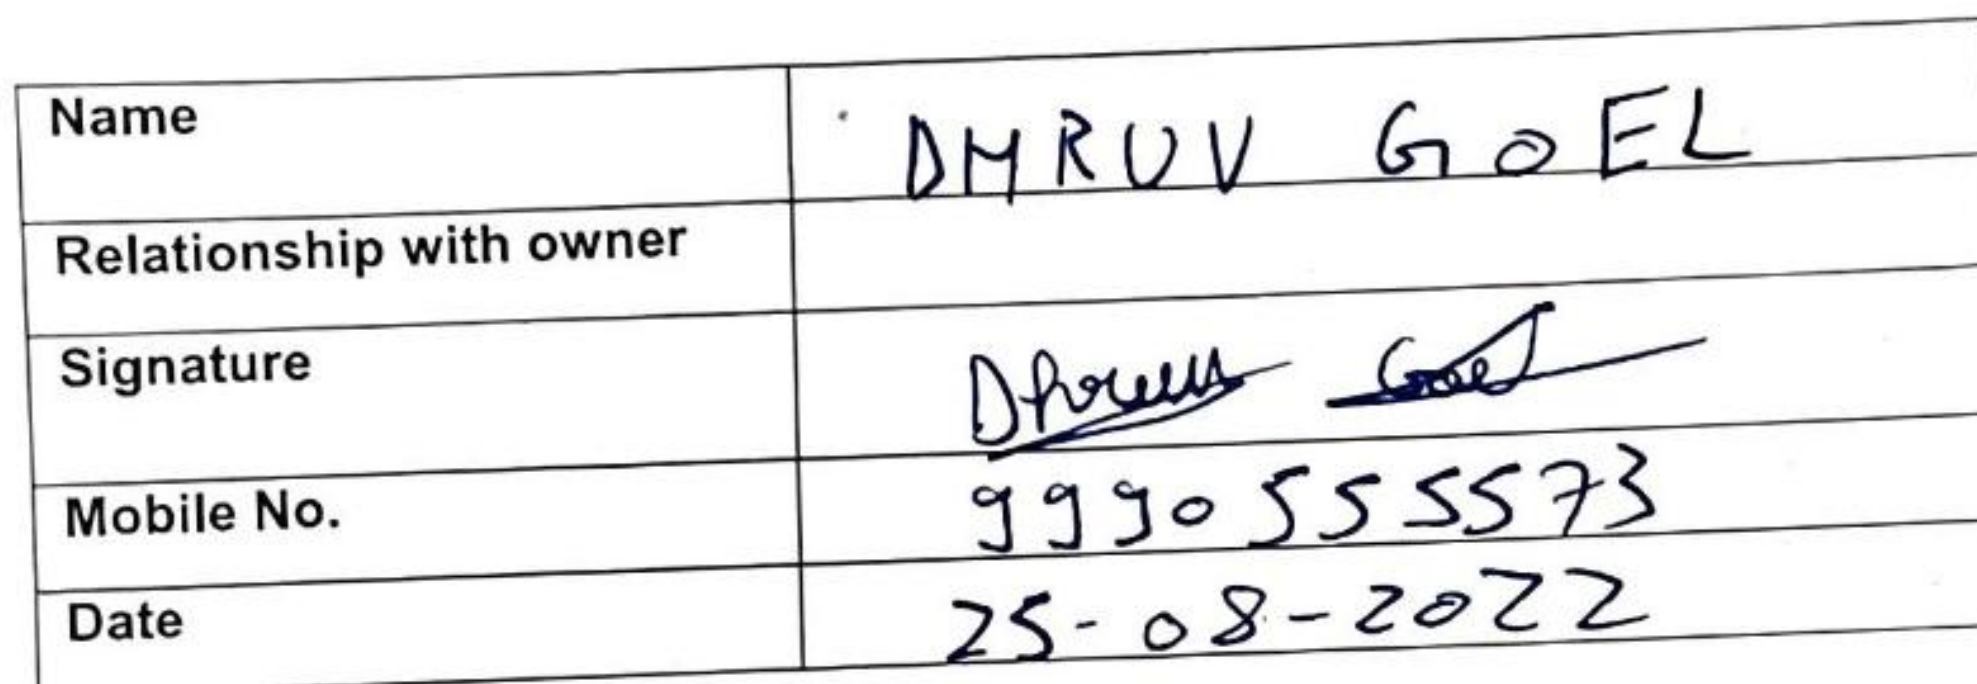 Name DHRUV GOEL
Relationship with owner
Signature Dhruv Goel
Mobile No. 9990555573
Date 25-08-2022